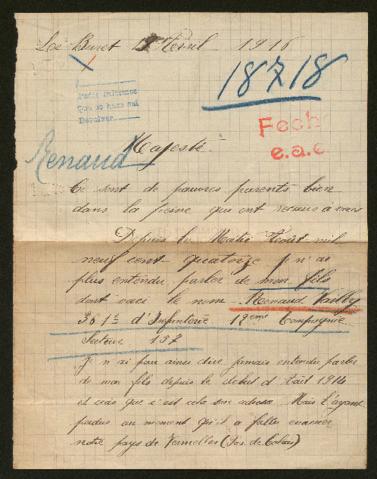 Les Buret 1916
18718
Pedir informes
Que se haga así
Devolver.
Fech
e.a.c
Renaud
Majesté
Ce sont de pauvres parents bien
dans la peine qui ont recours à vous
Depuis le mil
neuf cent quatorze je n'ai
plus entendu parler de mon fils
dont voici le nom Renaud
d'Infanterie Compagnie
Secteur 137
je n'ai pour ainsi dire jamais entendu parler
de mon fils depuis le début d' 1914
et crois que c'est cela son adresse Mais l'ayant
perdue au moment qu'il a fallu évacuer
notre pays de Vermelles (Pas de Calais)